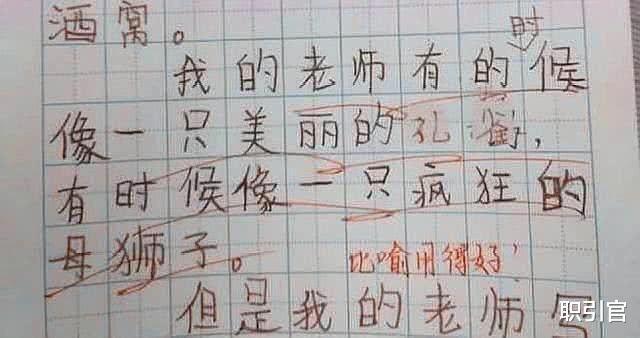 酒窝。
时
我的老师有的候
像一只美丽的孔,
有时候像一只疯狂的
母狮子。 比喻用得好
但是我的老师
职引官